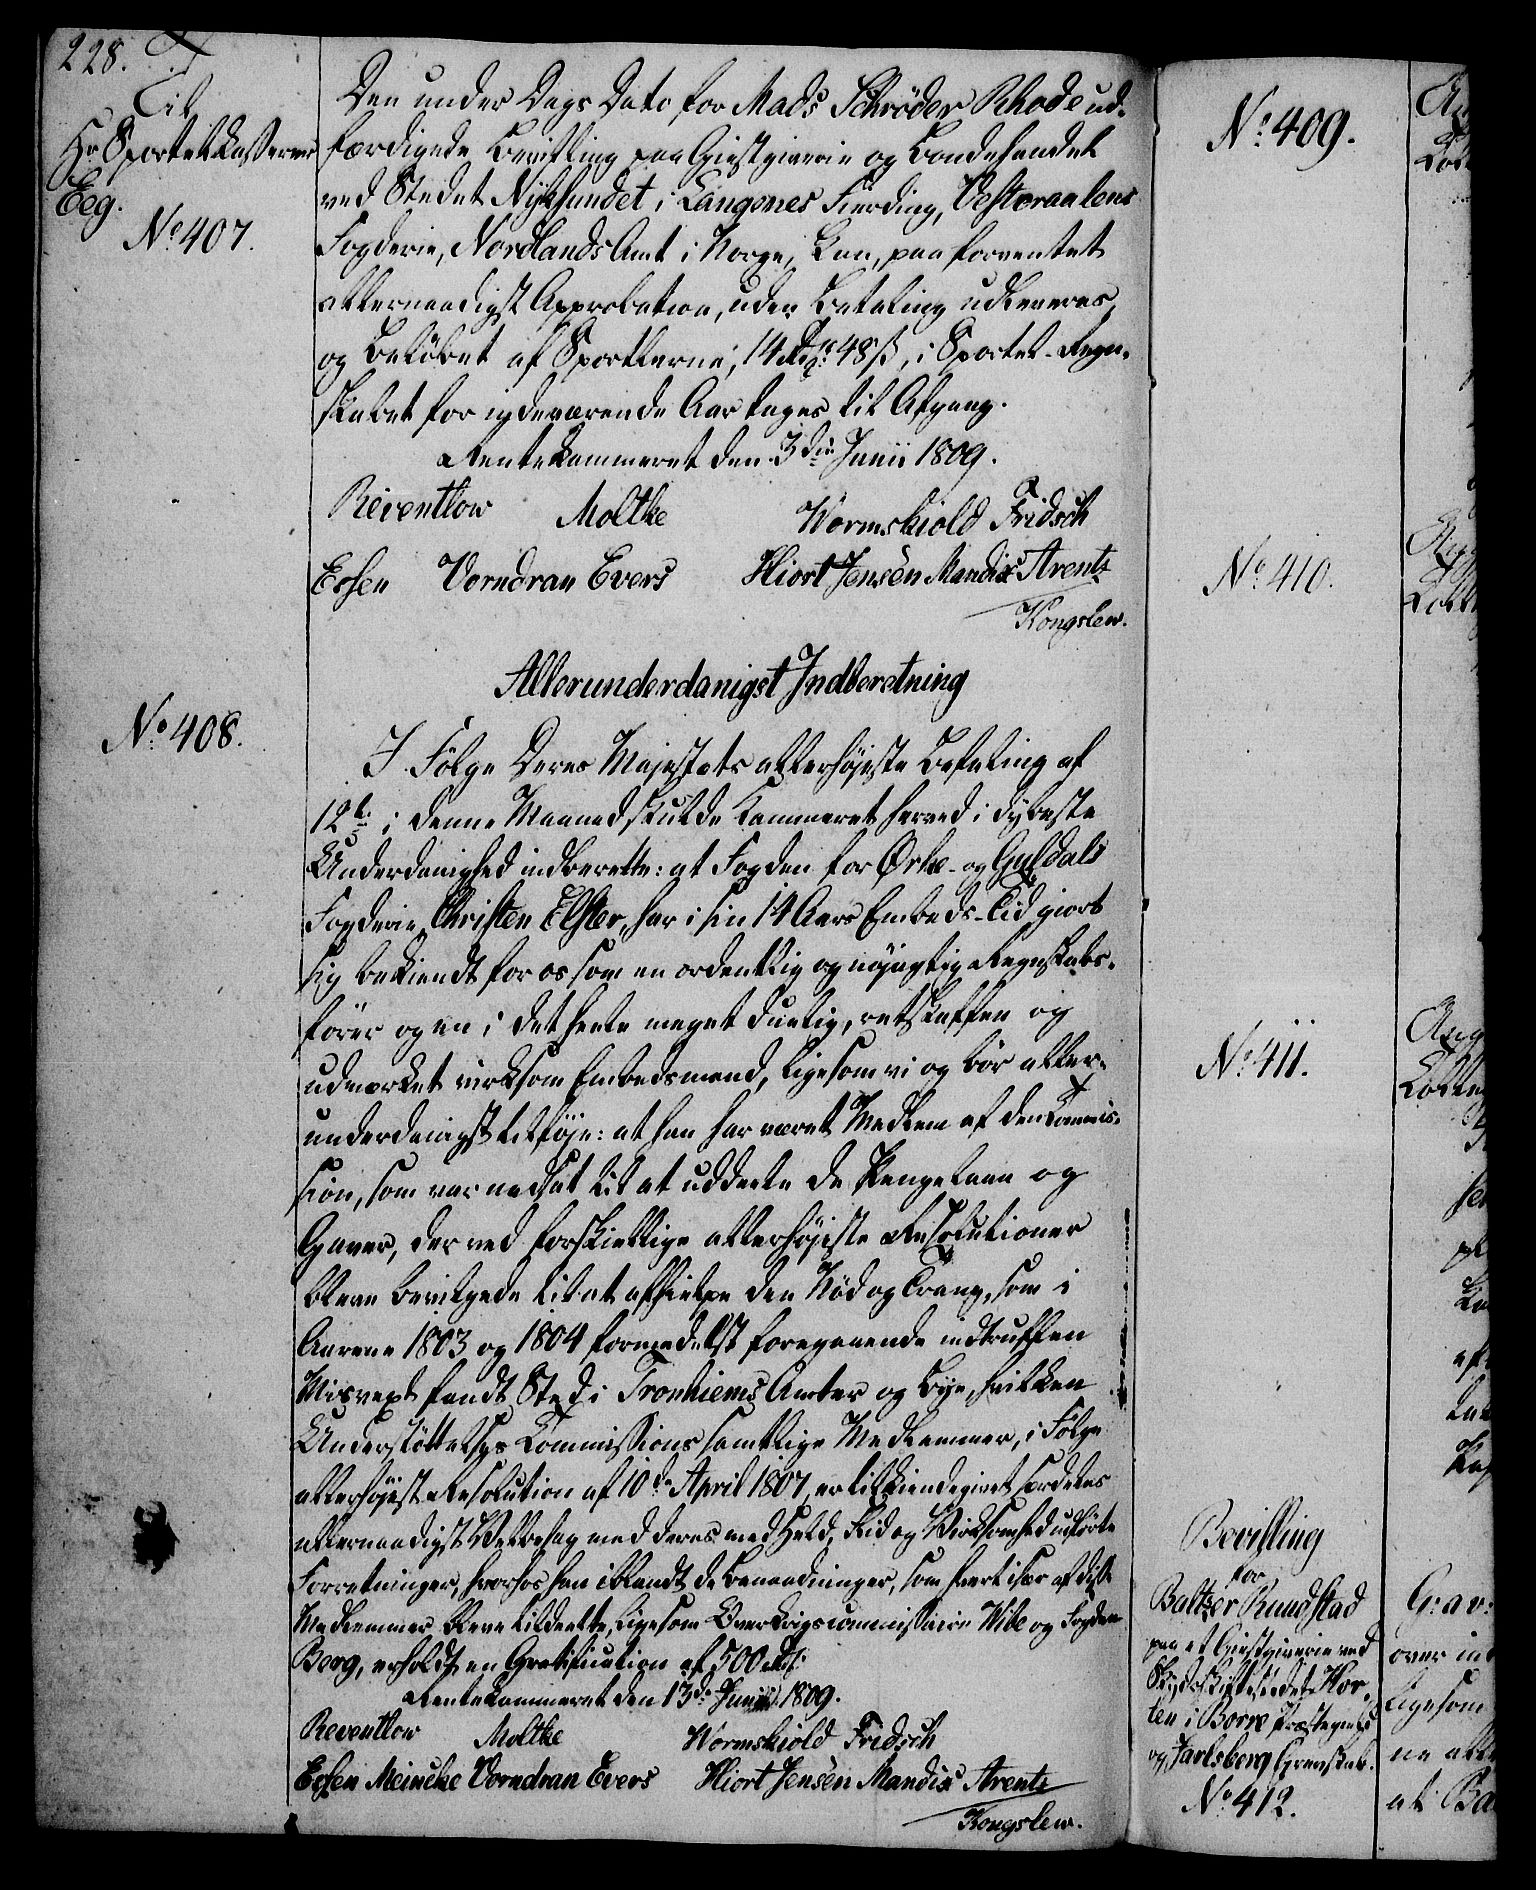 228.
Til
Hr Sportelkasserer
Eeg.
No 407.
Den under Dags Dato for Mads Schrøder Rhode ud-
færdigede Bevilling paa Giestgiverie og Bondehandel
ved Stedet Nyksundet i Langenes Fierding, Vestoraalens
Fogderie, Nordlands Amt i Norge, kan, paa forventet
allernaadigst Approbation, uden Betaling udleveres,
og Beløbet af Sportlerne, 14 Rdr 48 ß, i Sportel-Regn-
skabet for igdeværende Aar tages til Afgang.
Rentekammeret den 3die Junii 1809.
Reventlow Moltke Wormskiold Fridsch
Essen Vorndran Evers Hiort Jensen Mandix Arentz
Kongslew.
Allerunderdanigst Indberetning
No 408.
I Følge Deres Majestæts allerhøjeste Befaling af
12te i denne Maaned skulde Kammeret herved i dybeste
Underdanighed indberette: at Fogden for Ørke- og Guldals
Fogderie, Christen Elster, har i sin 14 Aars Embeds-Tid giort
sig bekiendt for os som en ordentlig og nøjagtig Regnskabs-
fører og en i det heele meget duelig, retskaffen og
udmærket virksom Embedsmand, ligesom vi og bør aller-
underdanigst tilføje: at han har været Medlem af den Commis-
sion, som var nedsat til at uddeele de Pengelaan og
Gaver, der ved forskiellige allerhøjeste Resolutioner
bleve bevilgede til at afhielpe den Nød og Trang, som i
Aarene 1803 og 1804 formedelst foregaaende indtruffen
Misvext fandt Sted i Tronhiems Amter og Bye, hvilken
Understøttelses Commissions samtlige Medlemmer, i Følge
allerhøjest Resolution af 10de April 1807, er tilkiendegivet særdeles
allernaadigst Velbehag med deres med Held, Flid og Virksomhed udførte
Forretninger, hvorhos han iblandt de Benaadninger, som hvert især af disse
Medlemmer bleve tildeelte, ligesom Overkrigscommissaire Wibe og Fogden
Berg, erholdt en Gratification af 500 Rdr.
Rentekammeret den 13de Junii 1809.
Reventlow Moltke Wormskiold Fridsch
Essen Meincke Vorndran Evers Hiort Jensen Mandix Arentz
Kongslew.
No 409.
No 410.
No 411.
Bevilling
for
Baltzer Rundstad
paa et Giestgiverie ved
Skydsskiftestedet Hor-
ten i Borre Præstegield
og Jarlsberg Grevskab.
No 412.